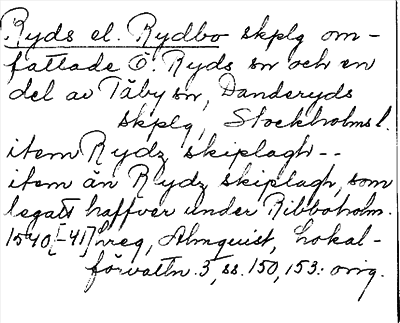 Ryds el. Rydbo skplg om-
fattade Ö. Ryds sn och en
del av Täby sn, Danderyds
skplg, Stockholms l.
item Rydz skiplagh--
item än Rydz skiplagh, som
legatt haffver under Ribboholm.
1540[-41] hreg, Almquist, Lokal-
förvaltn. 3, ss. 150, 153: orig.